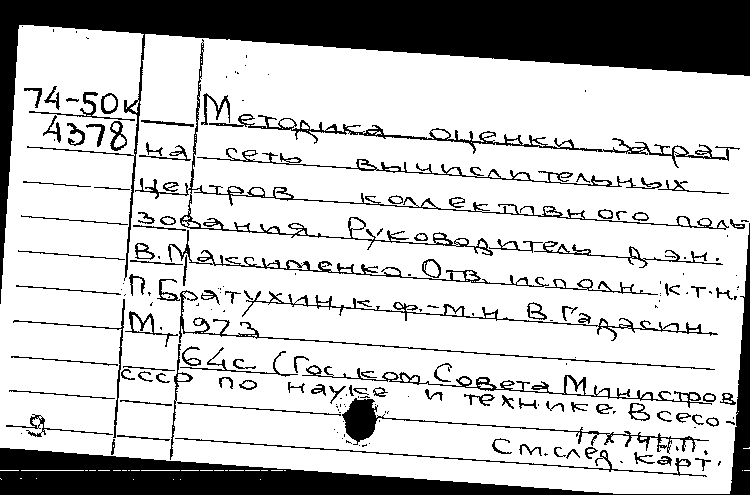 74-50к
4378
Методика оценки затрат
на сеть вычислительных
центров коллективного поль
зования. Руководитель д.э.н.
В.Максименко. Отв. исполн. к.т.н.
П.Братухин, к. ф.-м.н. В Гадасин.
М., 1973
64с. (Гос. ком. Совета Министров
СССР по науке и технике. Всесо-
17х24Н.П.
См. след. карт.
9